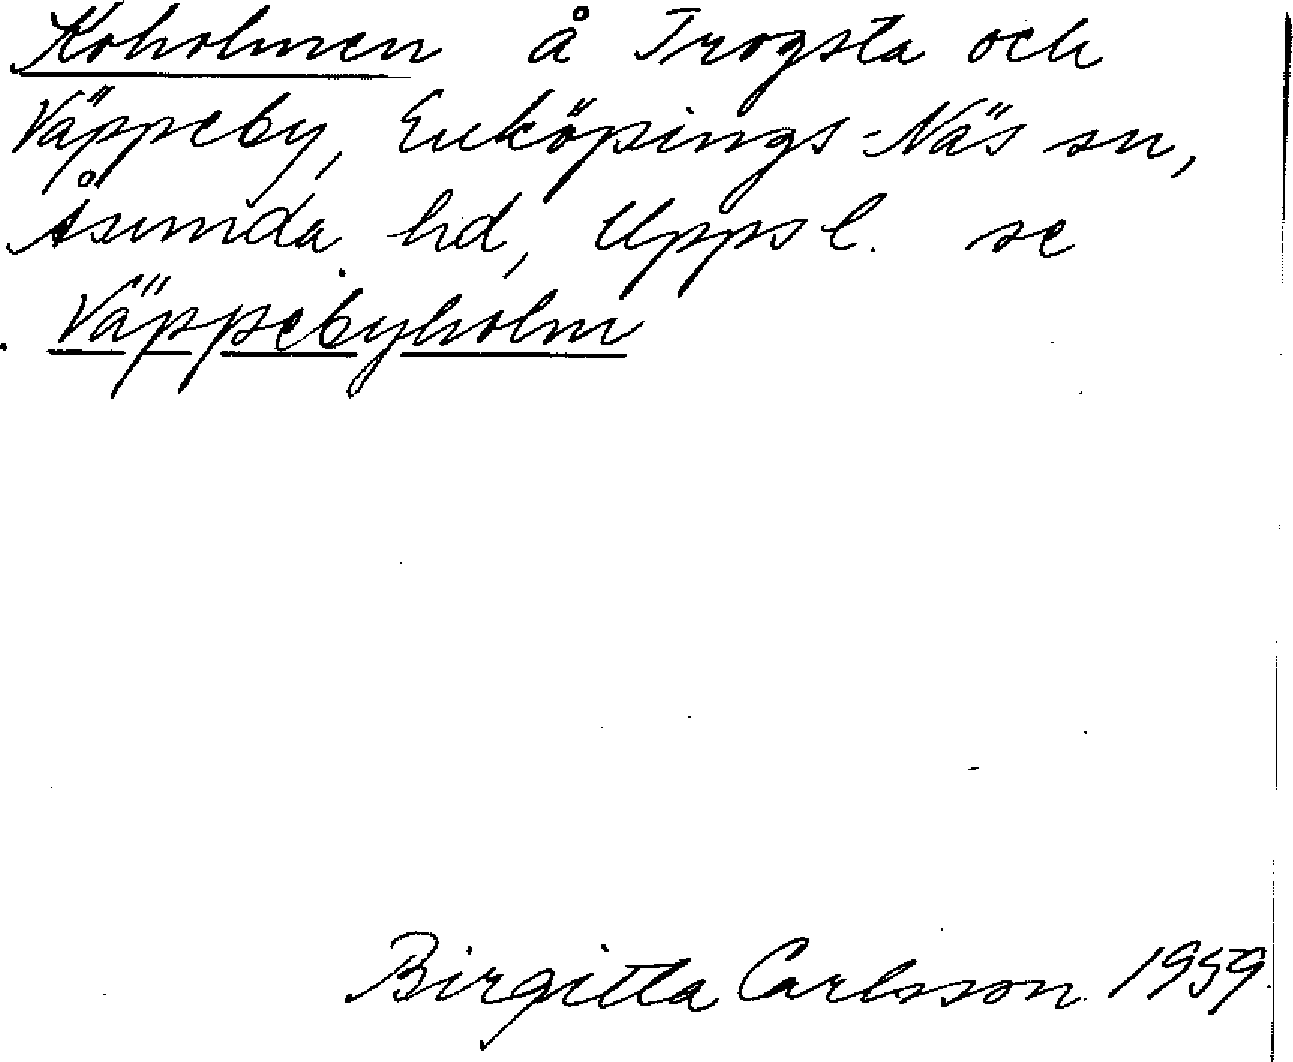 Koholmen å Trogsta och
Väppeby, Enköpings-Näs sn,
Åsunda hd, Uppsl. se
Väppebyholm
Birgitta Carlsson 1959.